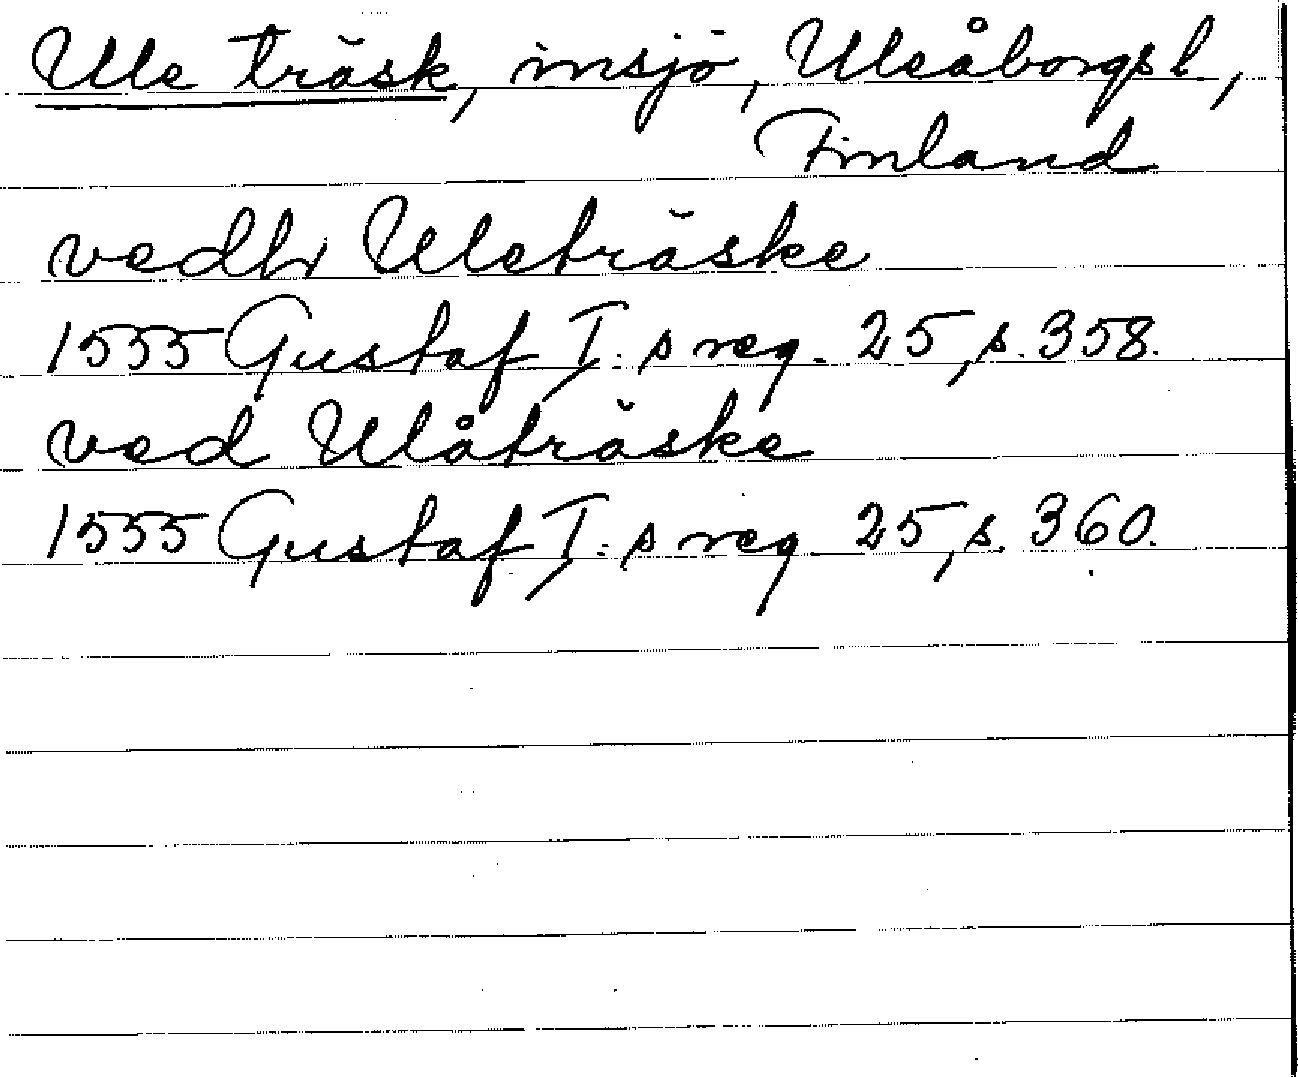 Ule träsk, insjö, Uleåborgs l,
Finland
vedh Uleträske
1555 Gustaf I:s reg. 25, s. 358.
ved Ulåträske
1555 Gustaf I:s reg. 25, s. 360.